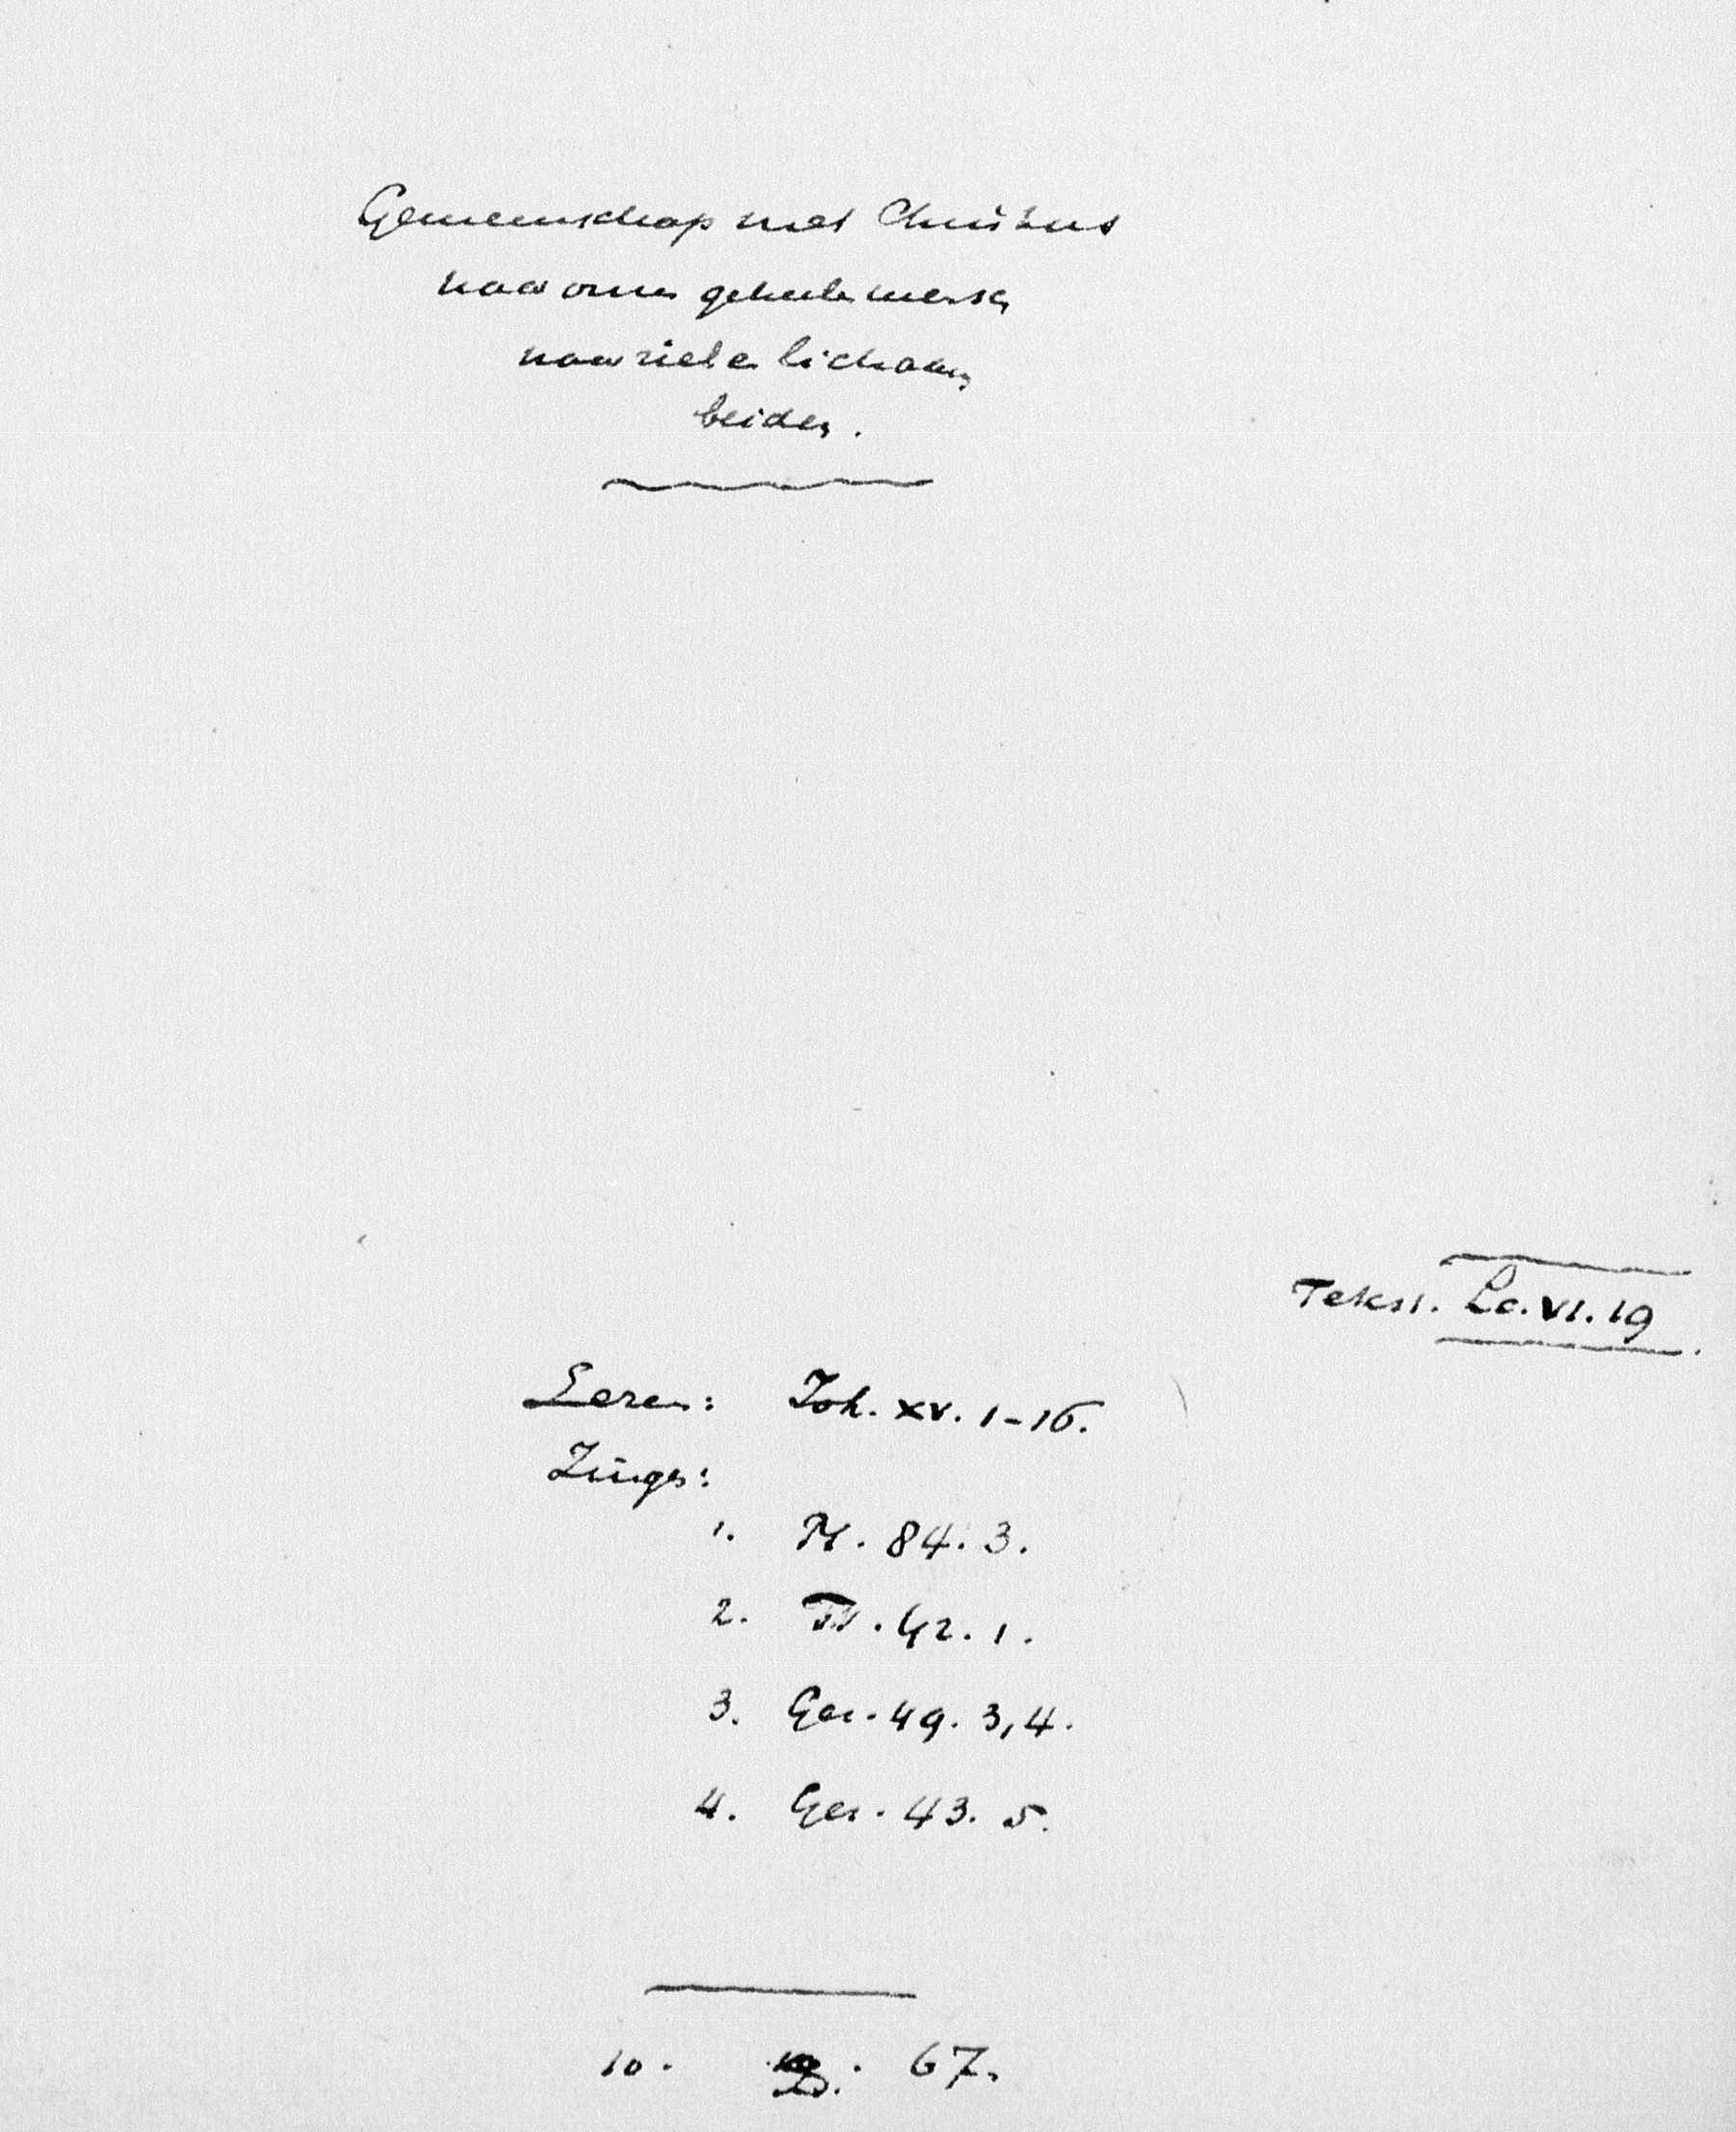 Gemeenschap met Christus
naar onzen geheelen mensch
naar ziel en lichaam
beiden.
Tekst. Lc. VI. 19
Lezen: Joh. XV. 1-16.
Zingen:
1. Ps. 84. 3.
2. Ps. 42. 1.
3. Gez. 49. 3,4.
4. Gez. 43. 5.
10. 67.